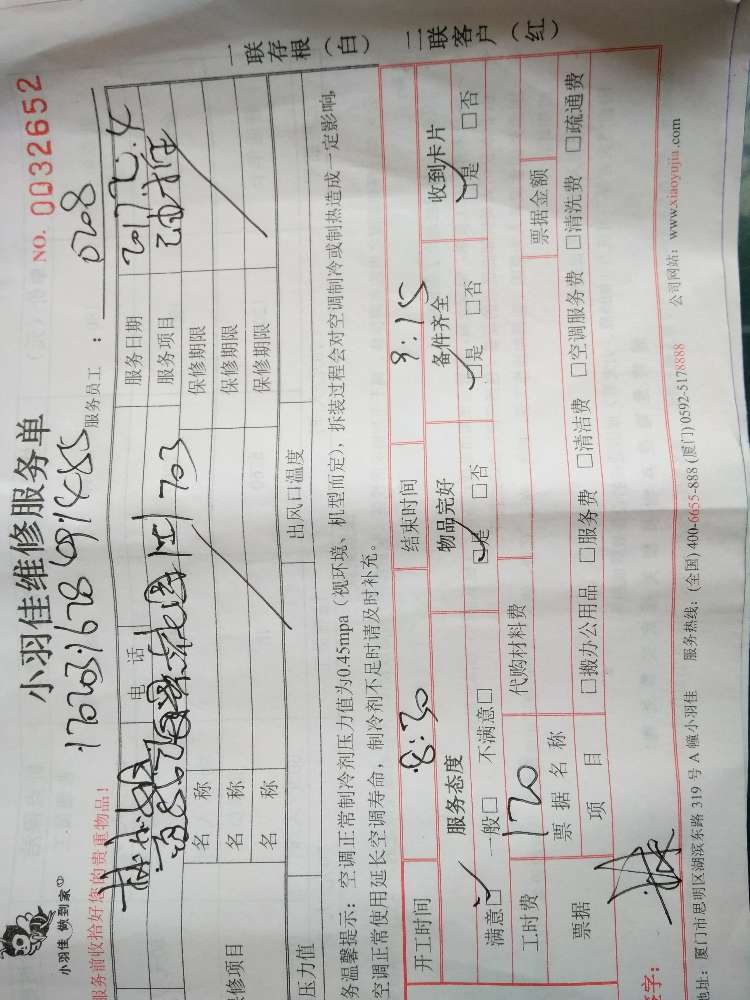 小羽佳 做到家
小羽佳维修服务单
NO. 0032652
1702031678691485
服务前收拾好您的贵重物品！
服务员工：0208
电 话
服务日期 2017.2.4
服务项目
703
名 称
保修期限
名 称
保修期限
名 称
保修期限
修项目
压力值
出风口温度
务温馨提示：空调正常制冷剂压力值为0.45mpa（视环境、机型而定），拆装过程会对空调制冷或制热造成一定影响，
空调正常使用延长空调寿命，制冷剂不足时请及时补充。
一联存根（白） 二联客户（红）
开工时间 8:30 结束时间 9:15
服务态度 物品完好 备件齐全 收到卡片
满意□ 一般□ 不满意□ □是 □否 □是 □否 □是 □否
工时费 120 代购材料费
票据 票据名称 票据金额
项目 □搬办公用品 □服务费 □清洁费 □空调服务费 □清洗费 □疏通费
签字：
地址：厦门市思明区湖滨东路 319 号 A 幢小羽佳 服务热线：(全国) 400-6655-888 (厦门) 0592-5178888 公司网站：www.xiaoyujia.com